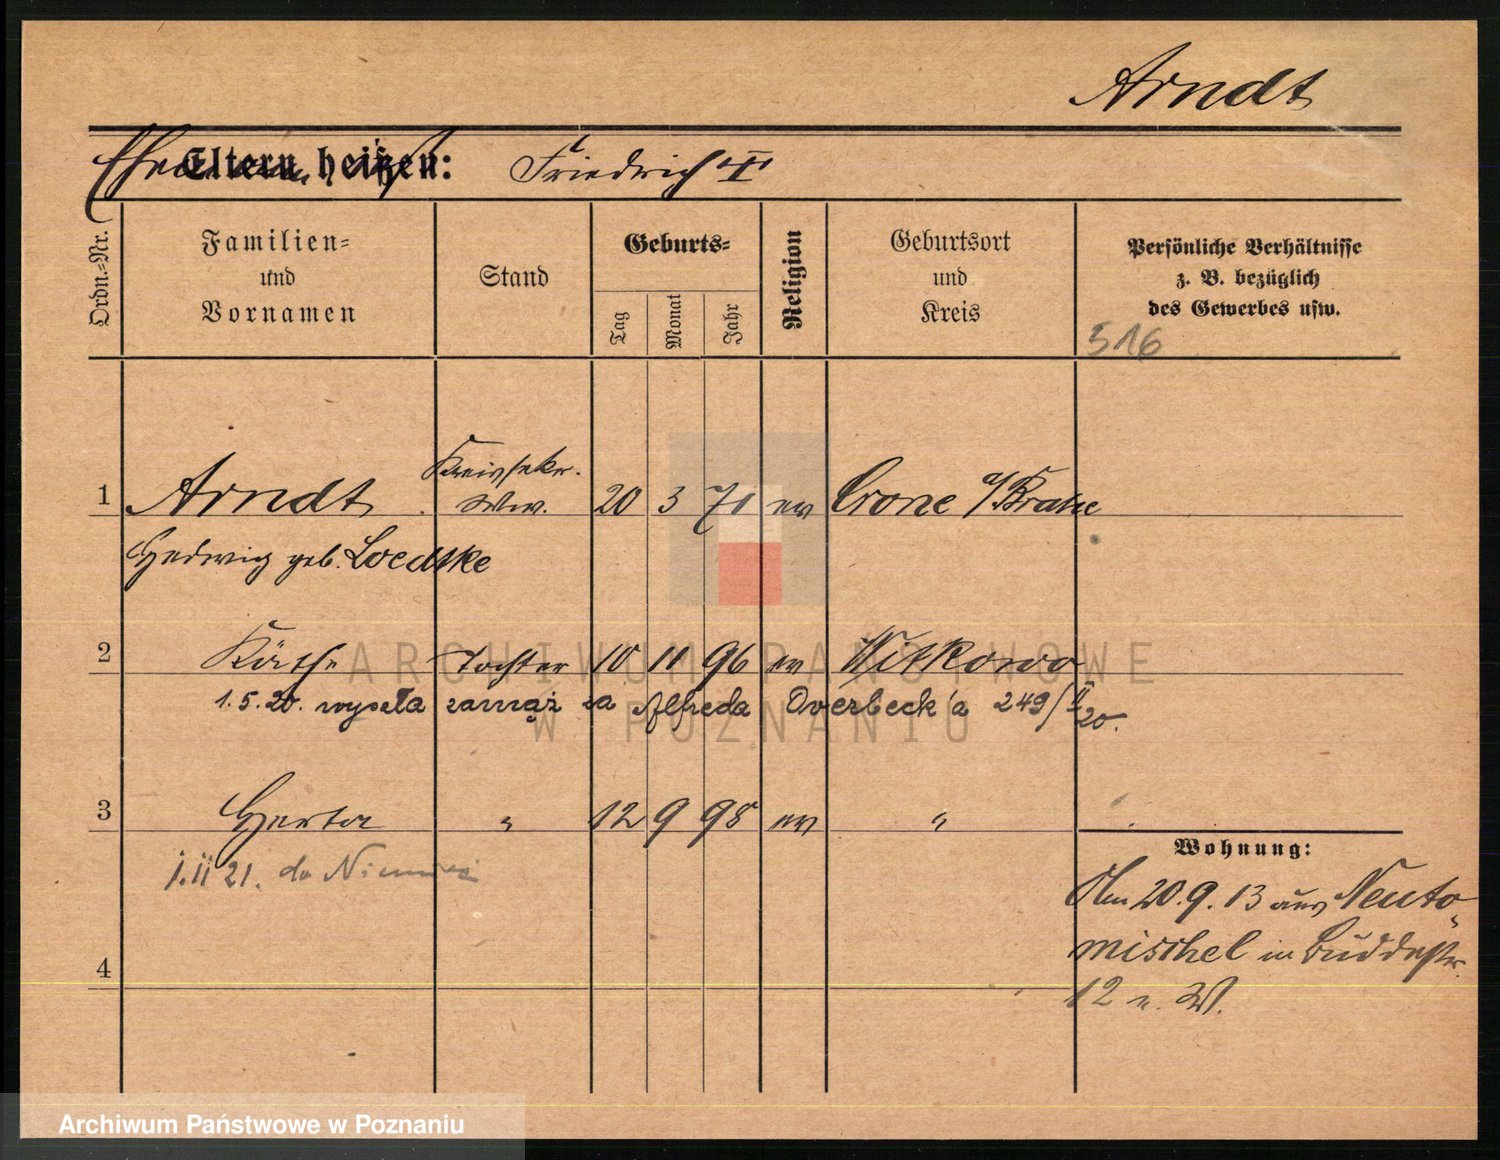 Arndt
Eltern heißen: Friedrich "I"
Ordn.=Nr.
Familien=
und
Vornamen
Stand
Geburts=
Tag
Monat
Jahr
Religion
Geburtsort
und
Kreis
Persönliche Verhältnisse
z. B. bezüglich
des Gewerbes usw.
516
1 Arndt Kreissekr. Wwe. 20 3 71 ev Crone a/Brahe
Hedwig geb. Loedtke
2 Käthe Tochter 10 11 96 ev Witkowo
1.5.20. wyszła zamąż za Alfreda Overbeck'a 249/II 20.
3 Herta " 12 9 98 ev "
1.II 21. do Niemiec
4
Wohnung:
Am 20.9.13 aus Neuto-
mischel in Buddestr.
12 n. W.
ARCHIWUM PAŃSTWOWE
W POZNANIU
Archiwum Państwowe w Poznaniu